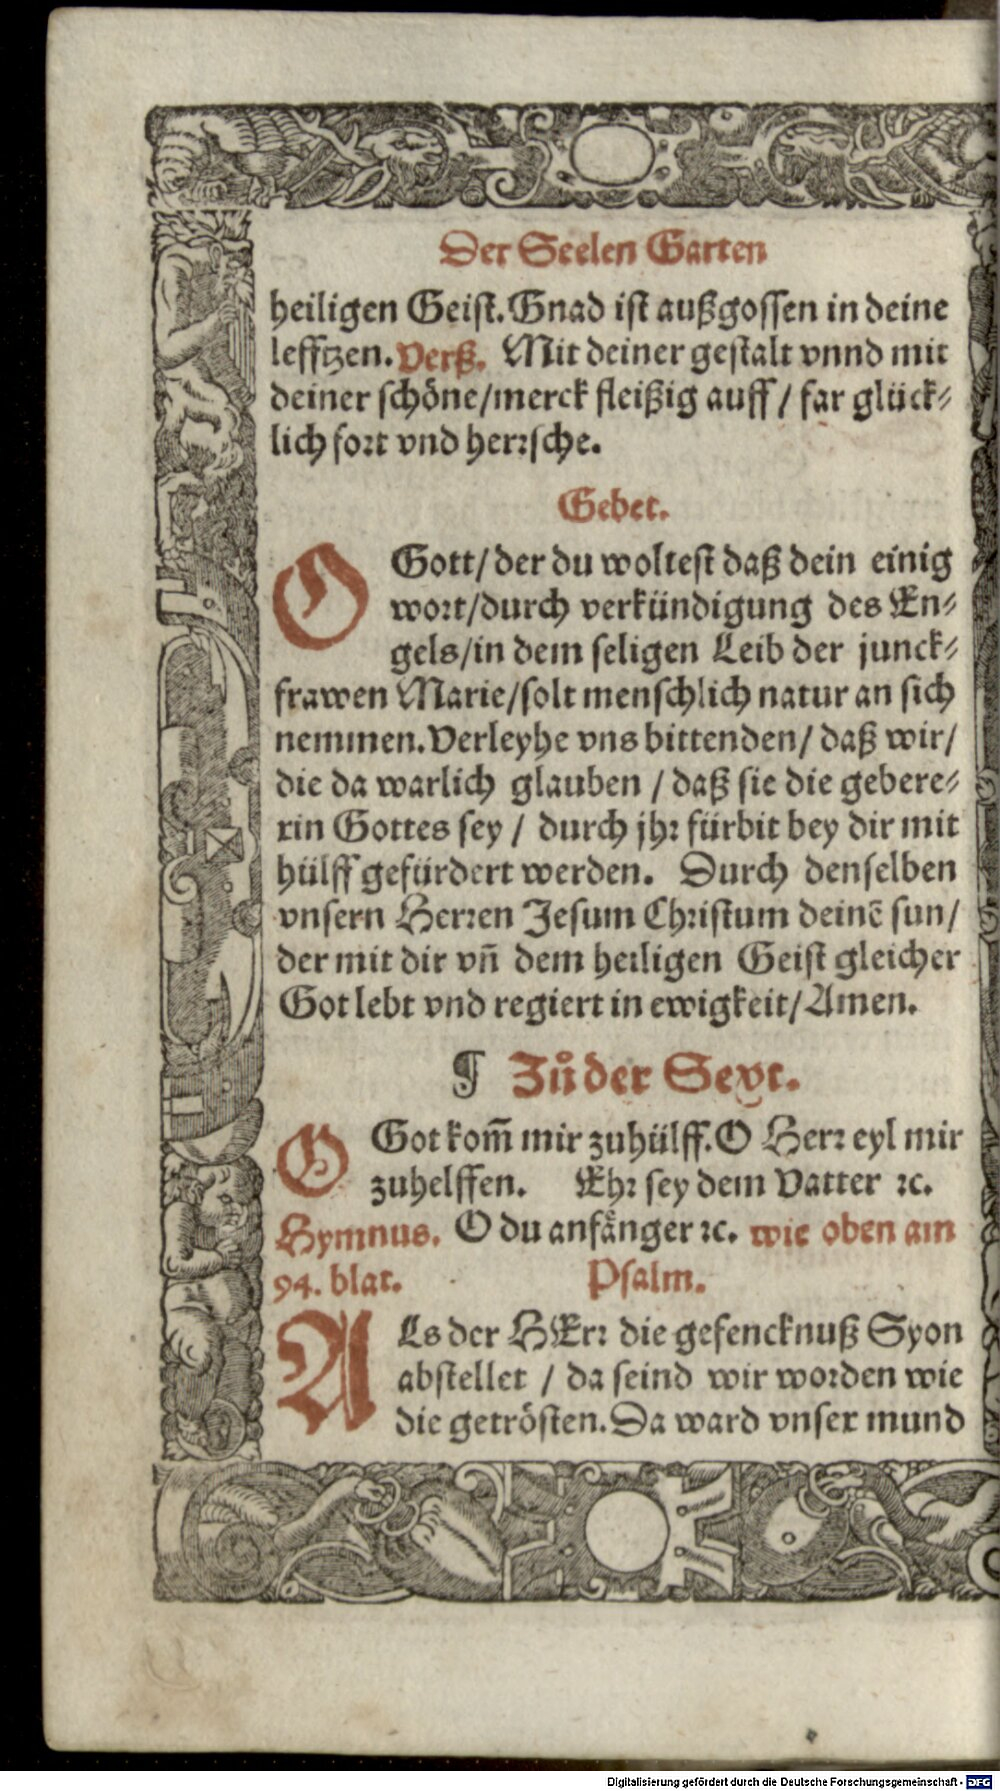 Der Seelen Garten
heiligen Geist. Gnad ist außgossen in deine
lefftzen. Verß. Mit deiner gestalt vnnd mit
deiner schöne/merck fleißig auff / far glück⸗
lich fort vnd herrsche.
Gebet.
O Gott/der du woltest daß dein einig
wort/durch verkündigung des En⸗
gels/in dem seligen Leib der junck⸗
frawen Marie/solt menschlich natur an sich
nemmen. Verleyhe vns bittenden/ daß wir/
die da warlich glauben / daß sie die gebere⸗
rin Gottes sey / durch jhr fürbit bey dir mit
hülff gefürdert werden. Durch denselben
vnsern Herren Jesum Christum deinē sun/
der mit dir vñ dem heiligen Geist gleicher
Got lebt vnd regiert in ewigkeit/Amen.
¶ Zů der Sext.
O Got kom̃ mir zuhülff. O Herr eyl mir
zuhelffen. Ehr sey dem Vatter ꝛc.
Hymnus. O du anfaͤnger ꝛc. wie oben am
94. blat. Psalm.
ALs der HErr die gefencknuß Syon
abstellet / da seind wir worden wie
die getrösten. Da ward vnser mund
Digitalisierung gefördert durch die Deutsche Forschungsgemeinschaft - DFG